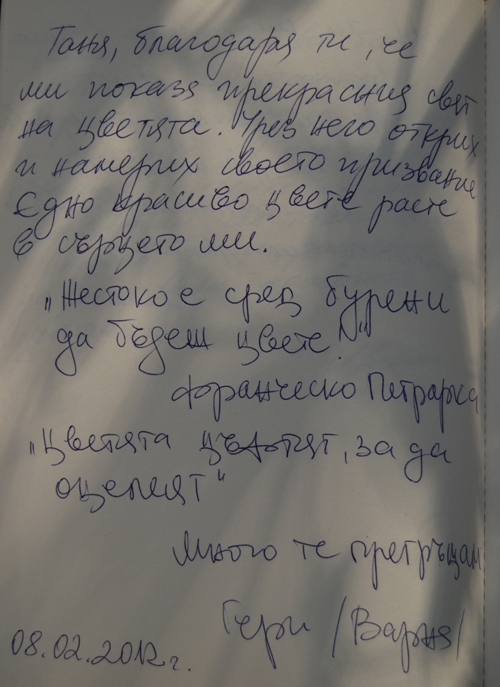 Таня, благодаря ти, че
ми показа прекрасния свят
на цветята. Чрез него открих
и намерих своето призвание
Едно красиво цвете расте
в сърцето ми.
„Жестоко е сред бурени
да бъдеш цвете!"
Франческо Петрарка
„Цветята цъфтят, за да
оцелеят"
Много те прегръщам
Гери /Варна/
08.02.2012г.